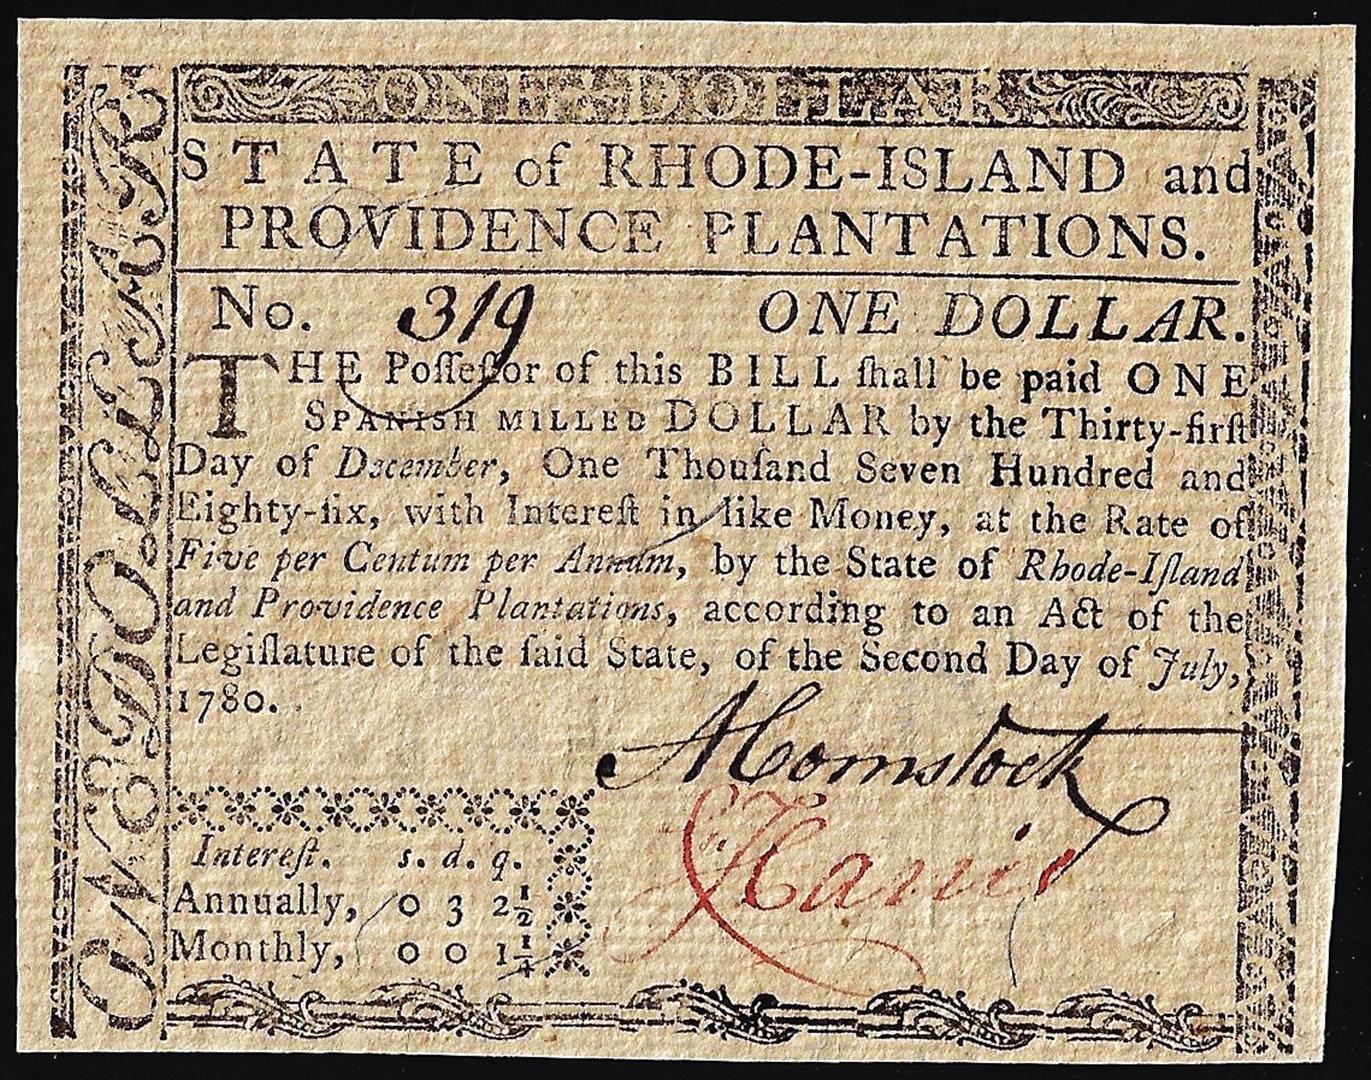 ONE DOLLAR
ONE DOLLAR
STATE of RHODE-ISLAND and
PROVIDENCE PLANTATIONS.
No. 319 ONE DOLLAR.
THE Poſſeſſor of this BILL ſhall be paid ONE
SPANISH MILLED DOLLAR by the Thirty-firſt
Day of December, One Thouſand Seven Hundred and
Eighty-ſix, with Intereſt in like Money, at the Rate of
Five per Centum per Annum, by the State of Rhode-Iſland
and Providence Plantations, according to an Act of the
Legiſlature of the ſaid State, of the Second Day of July,
1780.
A Comstock
Harris
Intereſt. s. d. q.
Annually, 0 3 2½
Monthly, 0 0 1¼